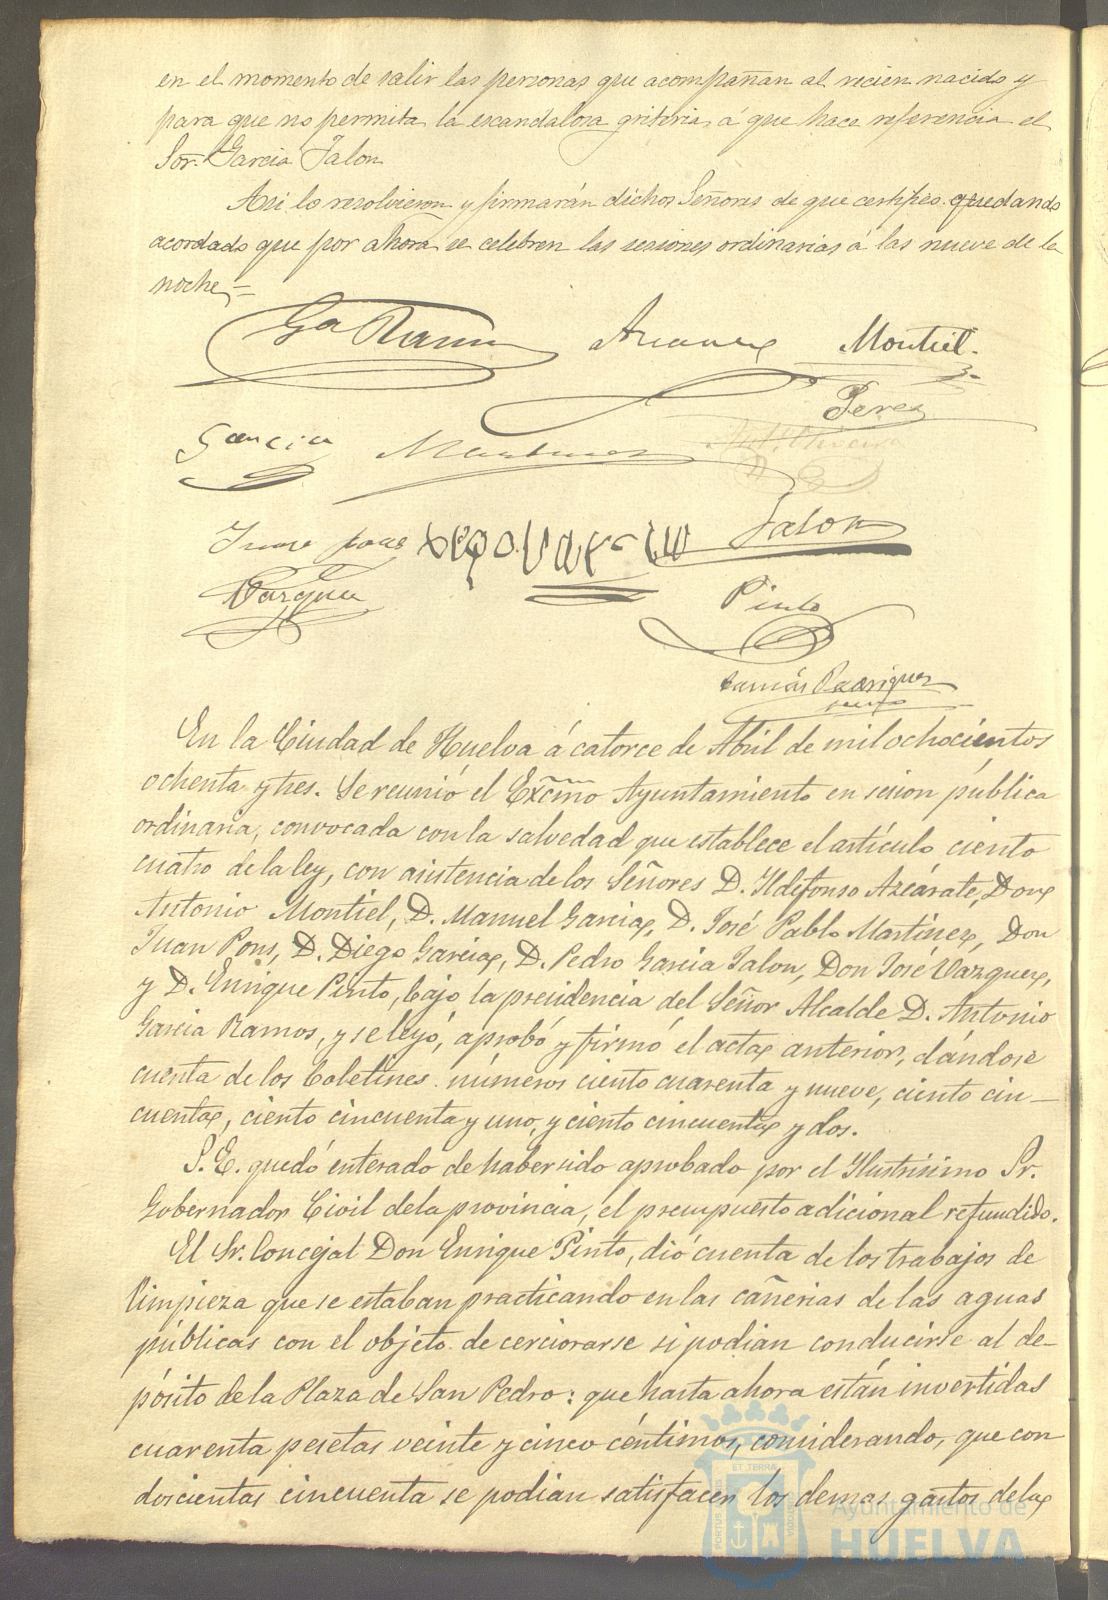 en el momento de salir las personas que acompañan al recien nacido y
para que no permita la escandalosa griteria, á que hace referencia el
Sor. Garcia Jalon
Asi lo resolvieron y firmarán dichos Señores de que certifico. quedando
acordado que por ahora se celebren las sesiones ordinarias á las nueve de la
noche,=
Ga Ramos Montiel.
Perez
Garcia Martinez
Juan pons Jalon
Vazquez Pinto
Tomás Rodriguez
En la Ciudad de Huelva á catorce de Abril de mil ochocientos
ochenta y tres. Se reunió el Excmo Ayuntamiento en sesion pública
ordinaria, convocada con la salvedad que establece el artículo ciento
cuatro de la ley, con asistencia de los Señores D. Ildefonso Azcárate, Don
Antonio Montiel, D. Manuel Garcia, D. José Pablo Martinez, Don
Juan Pons, D. Diego Garcia, D. Pedro Garcia Jalon, Don José Vazquez,
y D. Enrique Pinto, bajo la presidencia del Señor Alcalde D. Antonio
Garcia Ramos, y se leyó, aprobó y firmó el acta anterior, dándose
cuenta de los boletines números ciento cuarenta y nueve, ciento cin-
cuenta, ciento cincuenta y uno, y ciento cincuenta y dos.
S. E. quedó enterado de haber sido aprobado por el Ilustrísimo Sr.
Gobernador Civil de la provincia, el presupuesto adicional refundido.
El Sr. Concejal Don Enrique Pinto, dió cuenta de los trabajos de
limpieza que se estaban practicando en las cañerias de las aguas
públicas con el objeto de cerciorarse si podian conducirse al de-
pósito de la Plaza de San Pedro: que hasta ahora están invertidas
cuarenta pesetas veinte y cinco céntimos, considerando, que con
doscientas cincuenta se podian satisfacer los demas gastos de la
Ayuntamiento de
HUELVA